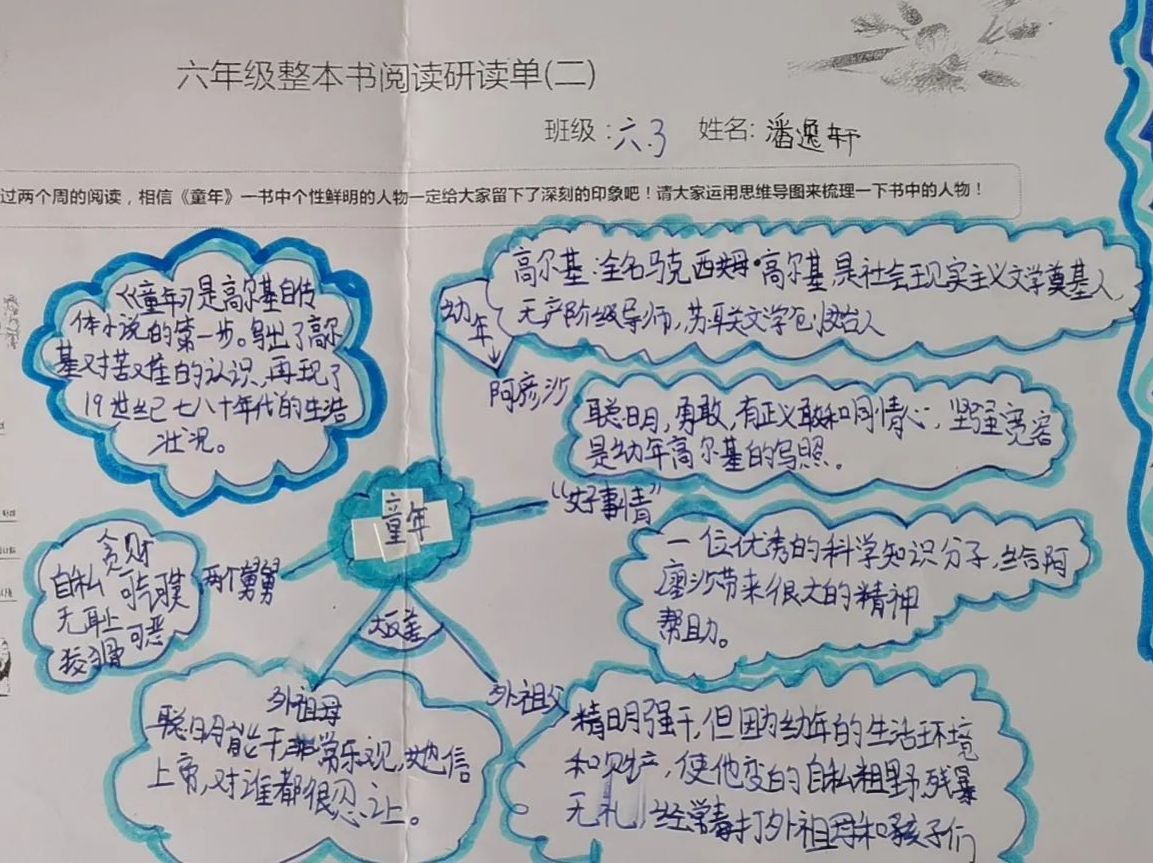 六年级整本书阅读研读单(二)
班级：六.3 姓名：潘逸轩
过两个周的阅读，相信《童年》一书中个性鲜明的人物一定给大家留下了深刻的印象吧！请大家运用思维导图来梳理一下书中的人物！
《童年》是高尔基自传
体小说的第一步。写出了高尔
基对苦难的认识，再现了
19世纪七八十年代的生活
壮况。
幼年
高尔基：全名马克西姆·高尔基，是社会主义现实主义文学奠基人，
无产阶级导师，苏联文学创始人
阿廖沙
聪明，勇敢，有正义敢和同情心，坚强宽容
是幼年高尔基的写照。
童年
“好事情”
一位优秀的科学知识分子，给阿
廖沙带来很大的精神
帮助。
两个舅舅
贪财
自私 可
无耻 可恶
狡猾
大反差
外祖母
聪明能干非常乐观，她信
上帝，对谁都很忍让。
外祖父
精明强干，但因为幼年的生活环境
和财产，使他变的自私粗野，残暴
无礼，经常毒打外祖母和孩子们